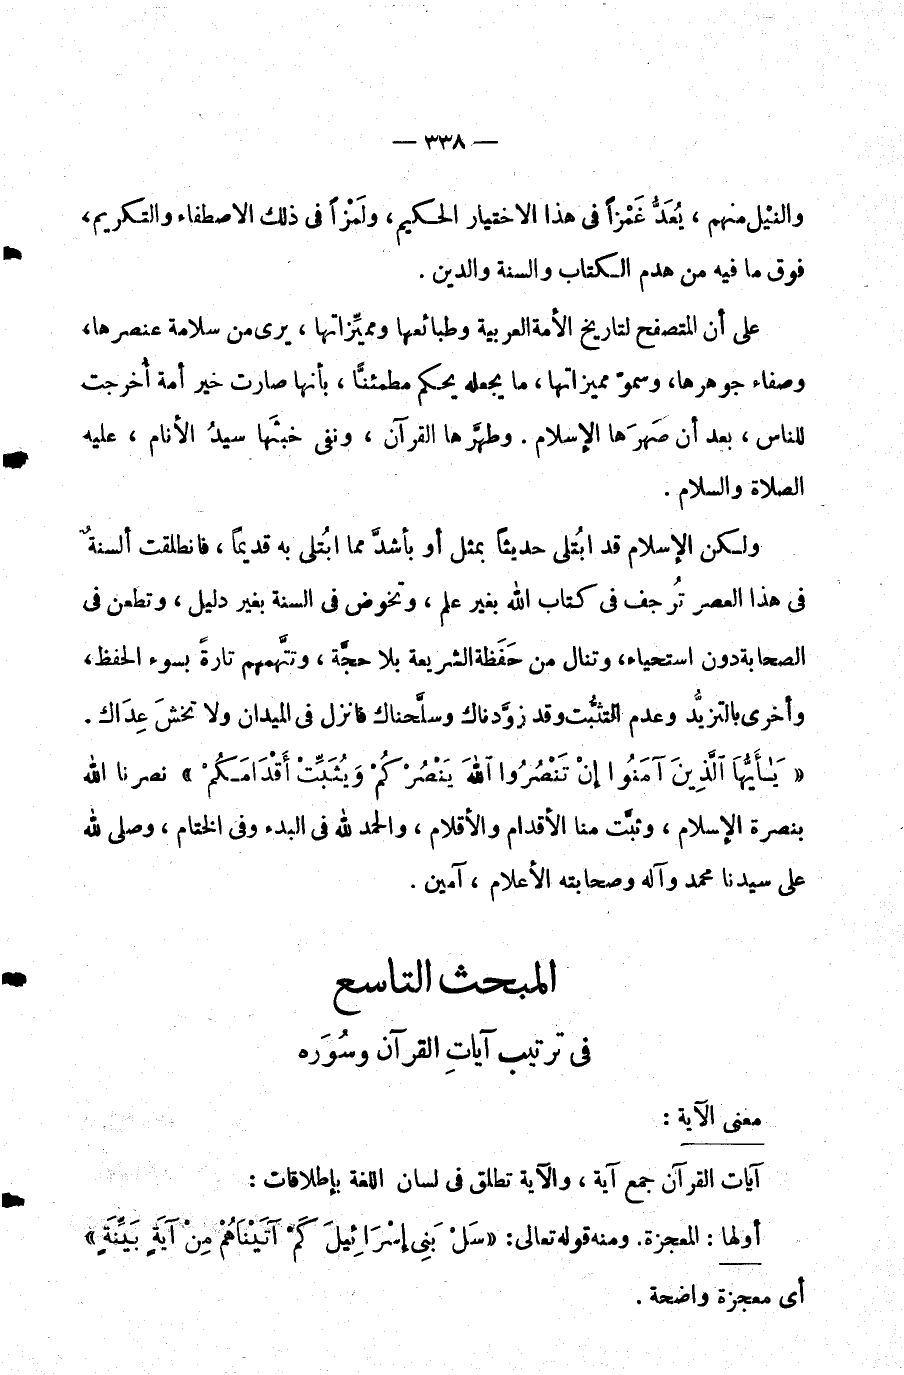 — ٣٣٨ —
والنيْل منهم ، يُعَدُّ غَمْزاً فى هذا الاختيار الحكيم ، ولَمْزاً فى ذلك الاصطفاء والتكريم ،
فوق ما فيه من هدم الكتاب والسنة والدين .
على أن المتصفح لتاريخ الأمة العربية وطبائعها ومميِّزاتها ، يرى من سلامة عنصرها ،
وصفاء جوهرها ، وسموّ مميزاتها ، ما يجعله يحكم مطمئنًّا ، بأنها صارت خير أمة أُخرجت
للناس ، بعد أن صَهرَها الإسلام . وطهَّرها القرآن ، ونفى خبثَها سيدُ الأنام ، عليه
الصلاة والسلام .
ولكن الإسلام قد ابتُلى حديثاً بمثل أو بأشدَّ مما ابتُلى به قديماً ، فانطلقت ألسنةٌ
فى هذا العصر تُرجف فى كتاب الله بغير علم ، وتخوض فى السنة بغير دليل ، وتطعن فى
الصحابة دون استحياء ، وتنال من حَفَظة الشريعة بلا حجَّة ، وتتَّهمهم تارةً بسوء الحفظ ،
وأخرى بالتزيُّد وعدم التثبُّت وقد زوَّدناك وسلَّحناك فانزل فى الميدان ولا تخشَ عِدَاك .
« يَٰأَيُّهَا ٱلَّذِينَ آمَنُوا إِنْ تَنْصُرُوا ٱللهَ يَنْصُرْكُمْ وَيُثَبِّتْ أَقْدَامَكُمْ » نصرنا الله
بنصرة الإسلام ، وثبَّت منا الأقدام والأقلام ، والحمد لله فى البدء وفى الختام ، وصلى لله
على سيدنا محمد وآله وصحابته الأعلام ، آمين .
المبحث التاسع
فى ترتيب آياتِ القرآن وسُوَره
معنى الآية :
آيات القرآن جمع آية ، والآية تطلق فى لسان اللغة بإطلاقات :
أولها : المعجزة . ومنه قوله تعالى : « سَلْ بَنِى إِسْرَائِيلَ كَمْ آتَيْنَاهُمْ مِنْ آيَةٍ بَيِّنَةٍ »
أى معجزة واضحة .